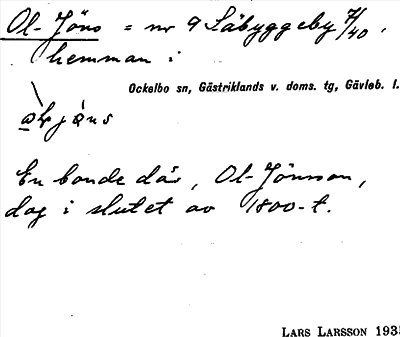 Ol-Jöns = nr 9 Såbyggeby 7/40.
hemman i
Ockelbo sn, Gästriklands v. doms. tg, Gävleb. l.
En bonde där, Ol-Jönsson,
dog i slutet av 1800-t.
LARS LARSSON 1935